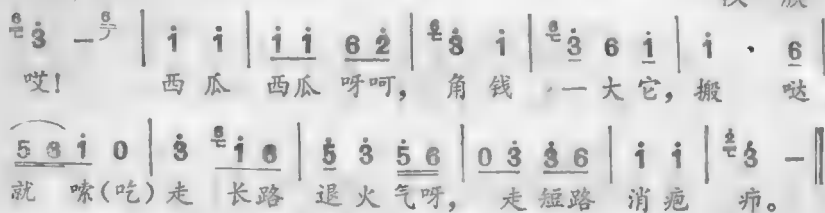 6 3 - 6 | i i | i i 6 2 | 6 3 i | 6 3 6 i | i · 6 |
哎! 西瓜 西瓜 呀呵, 角钱 一大它, 搬 哒
5 6 i 0 | 3 6 i 6 | 5 3 5 6 | 0 3 3 6 | i i | 2 3 - ‖
就 嗦(吃)走 长路 退火气呀, 走短路 消疤 疖。